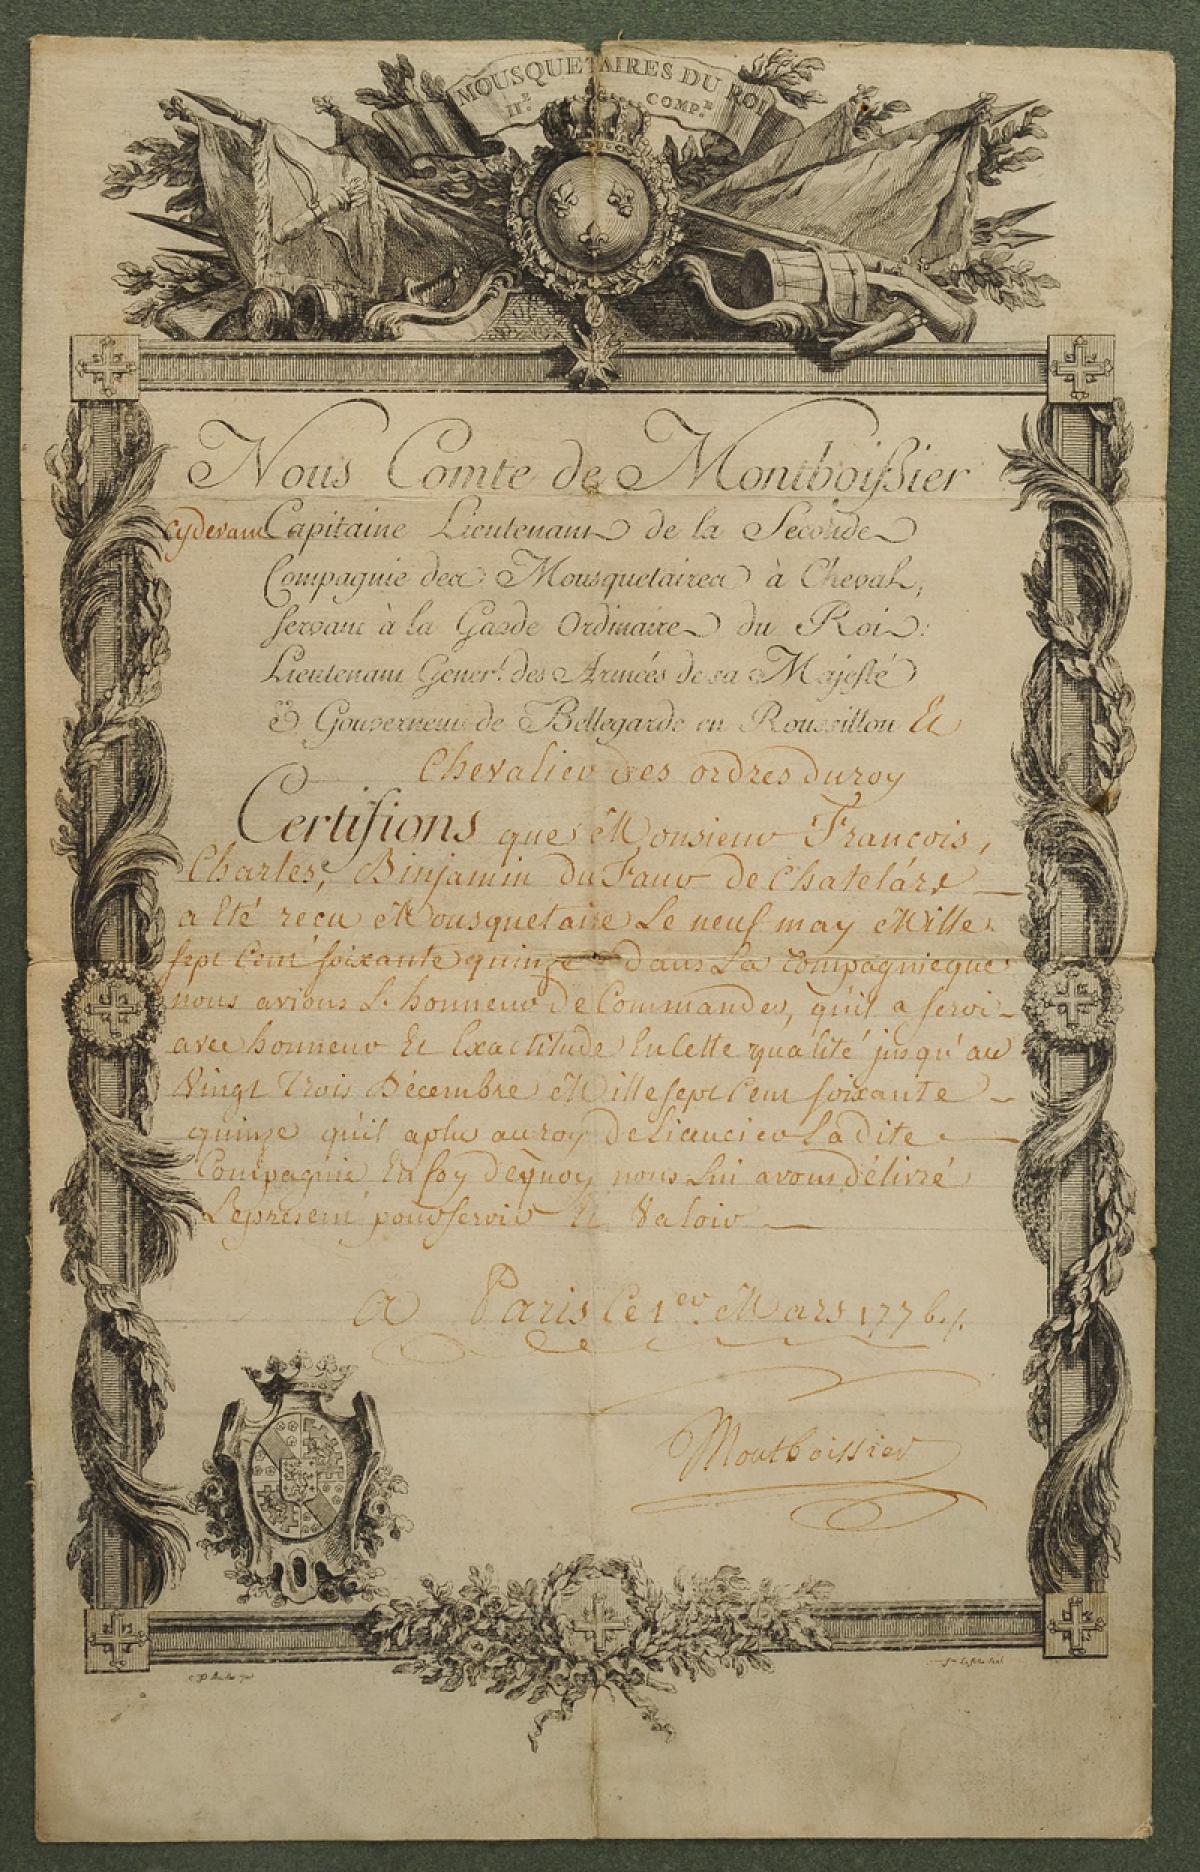 MOUSQUETAIRES DU ROI
II.e COMP.e
Nous Comte de Montboissier
cydevant Capitaine Lieutenant de la Seconde
Compagnie des Mousquetaires à Cheval,
servant à la Garde Ordinaire du Roi:
Lieutenant Gener.l des Armées de sa Majesté
& Gouverneur de Bellegarde en Roussillon Et
Chevalier des ordres du roy
Certifions que Monsieur François,
Charles, Binjamin Du Faur de Chatelárd
a Eté reçu Mousquetaire Le neuf may Mille
sept Cent soixante quinze dans La Compagnie que
nous avions L'honneur de Commander, qu'il a servi
avec honneur Et Exactitude En Cette qualité jusqu'au
Vingt Trois Décembre Mille sept Cent soixante
quinze qu'il a plu au roy De Licencier Ladite
Compagnie En foy dequoy nous Lui avons délivré
Le présent pour servir Et Valoir
A Paris Ce 1er Mars 1776./.
Montboissier